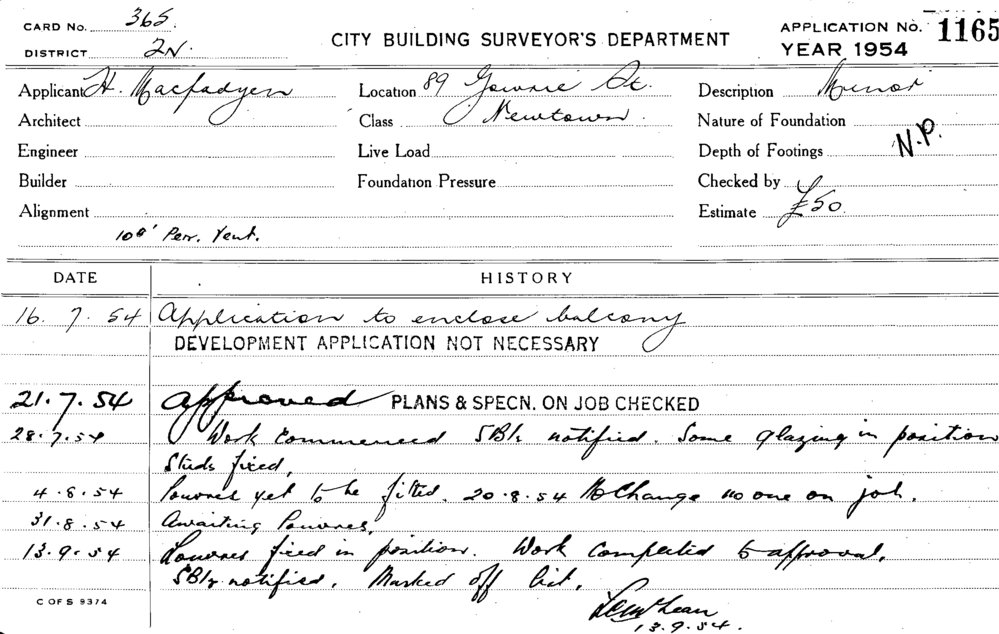 CARD No. 365.
DISTRICT 2N.
CITY BUILDING SURVEYOR'S DEPARTMENT
APPLICATION No. 1165
YEAR 1954
Applicant H. Macfadyen
Location 89 Gowrie St.
Description Minor
Architect
Class Newtown.
Nature of Foundation
Engineer
Live Load
Depth of Footings N.P.
Builder
Foundation Pressure
Checked by
Alignment
Estimate £50.
Per. Vent.
DATE HISTORY
16. 7. 54 Application to enclose balcony
DEVELOPMENT APPLICATION NOT NECESSARY
21.7.54 Approved PLANS & SPECN. ON JOB CHECKED
28.7.54 Work Commenced notified. Some glazing in position
Studs fixed,
4.8.54 Louvres yet to be fitted. 20.8.54 No Change no one on job.
31.8.54 Awaiting Louvres,
13.9.54 Louvres fixed in position. Work Completed to approval.
notified. Marked off list.
C OF S 9374
13.9.54.